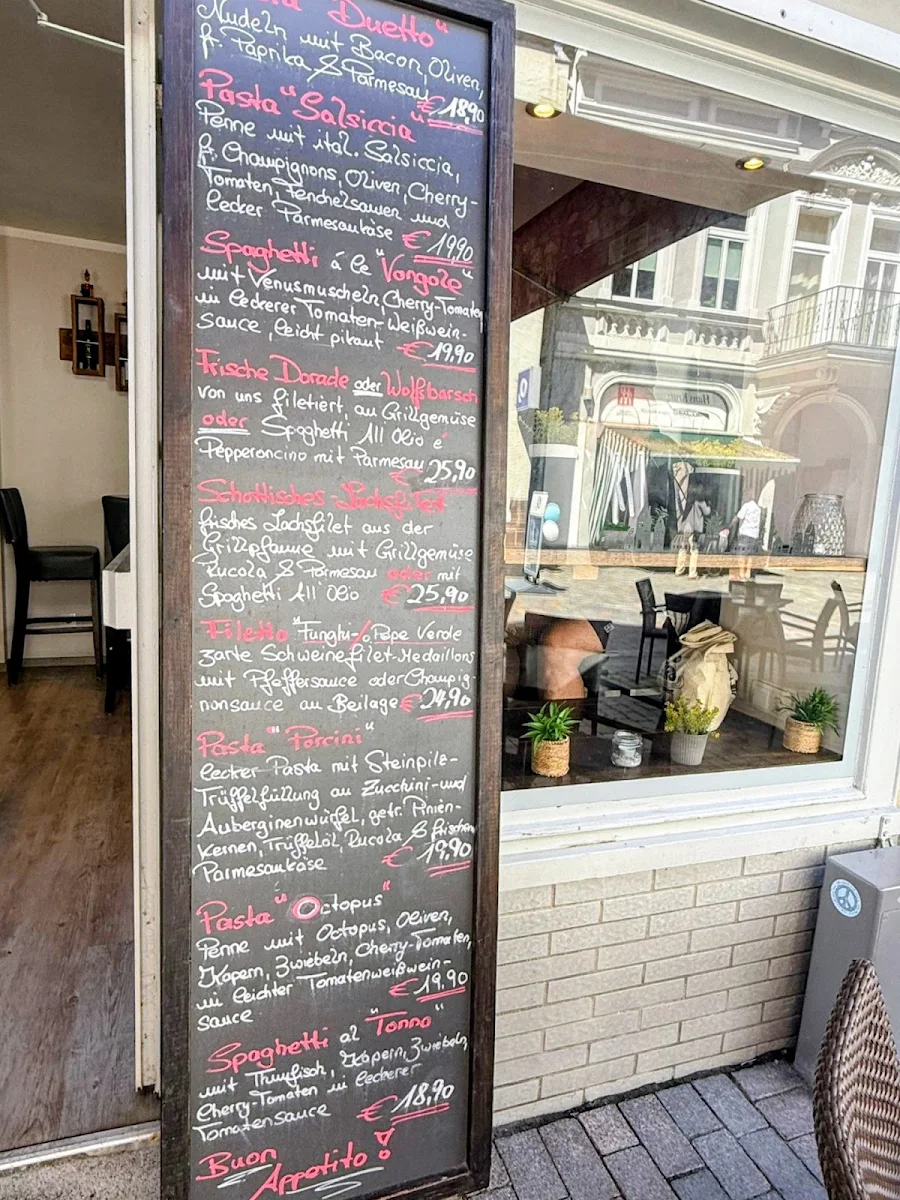 Duetto"
Nudeln mit Bacon, Oliven,
fr. Paprika & Parmesan
€ 18,90
Pasta "Salsiccia"
Penne mit ital. Salsiccia,
fr. Champignons, Oliven, Cherry-
Tomaten, Fenchelsamen und
lecker Parmesankäse € 19,90
Spaghetti á le "Vongole"
mit Venusmuscheln, Cherry-Tomaten
in leckerer Tomaten-Weißwein-
sauce, leicht pikant € 19,90
Frische Dorade oder Wolfsbarsch
von uns filetiert, an Grillgemüse
oder Spaghetti All Olio é
Pepperoncino mit Parmesan
€ 25,90
Schottisches Lachsfilet
frisches Lachsfilet aus der
Grillpfanne mit Grillgemüse
Rucola & Parmesan oder mit
Spaghetti All Olio € 25,90
Filetto "Funghi/o. Pepe Verde
zarte Schweinefilet-Medaillons
mit Pfeffersauce oder Champig-
nonsauce an Beilage € 24,90
Pasta "Porcini"
lecker Pasta mit Steinpilz-
Trüffelfüllung an Zucchini- und
Auberginenwürfel, getr. Pinien-
Kernen, Trüffelöl, Rucola & frischen
Parmesankäse € 19,90
Pasta "Octopus"
Penne mit Octopus, Oliven,
Kapern, Zwiebeln, Cherry-Tomaten,
in leichter Tomatenweißwein-
sauce € 19,90
Spaghetti al "Tonno"
mit Thunfisch, Kapern, Zwiebeln,
Cherry-Tomaten in leckerer
Tomatensauce € 18,90
Buon
Appetito!